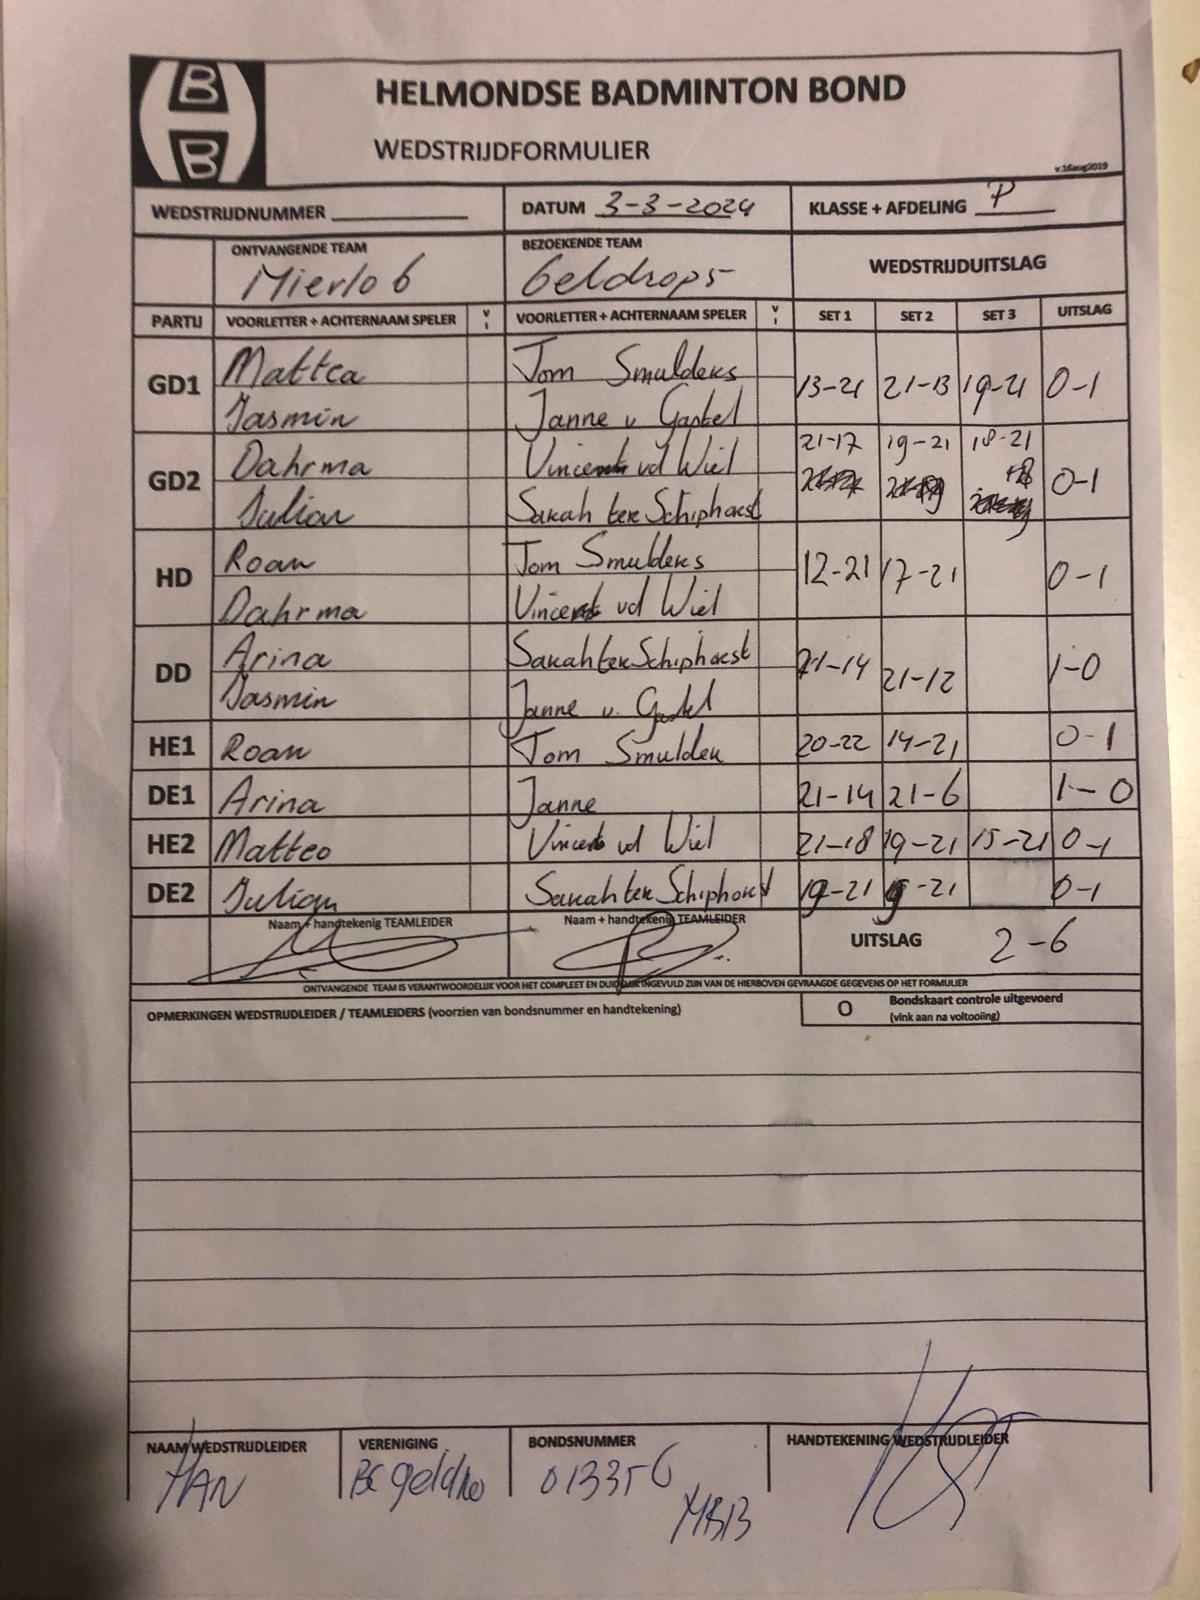 B
B
HELMONDSE BADMINTON BOND
WEDSTRIJDFORMULIER
v.16aug2019
WEDSTRIJDNUMMER DATUM 3-3-2024 KLASSE + AFDELING P
ONTVANGENDE TEAM BEZOEKENDE TEAM WEDSTRIJDUITSLAG
Mierlo 6 Geldrop5
PARTIJ VOORLETTER + ACHTERNAAM SPELER V I VOORLETTER + ACHTERNAAM SPELER V I SET 1 SET 2 SET 3 UITSLAG
GD1 Mattea Tom Smulders 13-21 21-13 19-21 0-1
Jasmin Janne v Gastel
GD2 Dahrma Vincent vd Wiel 21-17 19-21 18-21 0-1
Julian Sarah ter Schiphorst
HD Roan Tom Smulders 12-21 17-21 0-1
Dahrma Vincent vd Wiel
DD Arina Sarah ter Schiphorst 21-14 21-12 1-0
Jasmin Janne v. Gastel
HE1 Roan Tom Smulden 20-22 14-21 0-1
DE1 Arina Janne 21-14 21-6 1-0
HE2 Matteo Vincent vd Wiel 21-18 19-21 15-21 0-1
DE2 Julian Sarah ter Schiphorst 19-21 19-21 0-1
Naam + handtekenig TEAMLEIDER Naam + handtekenig TEAMLEIDER UITSLAG 2-6
ONTVANGENDE TEAM IS VERANTWOORDELIJK VOOR HET COMPLEET EN DUIDELIJK INGEVULD ZIJN VAN DE HIERBOVEN GEVRAAGDE GEGEVENS OP HET FORMULIER
OPMERKINGEN WEDSTRIJDLEIDER / TEAMLEIDERS (voorzien van bondsnummer en handtekening) O Bondskaart controle uitgevoerd
(vink aan na voltooiing)
NAAM WEDSTRIJDLEIDER VERENIGING BONDSNUMMER HANDTEKENING WEDSTRIJDLEIDER
HAN BC geldro 013356